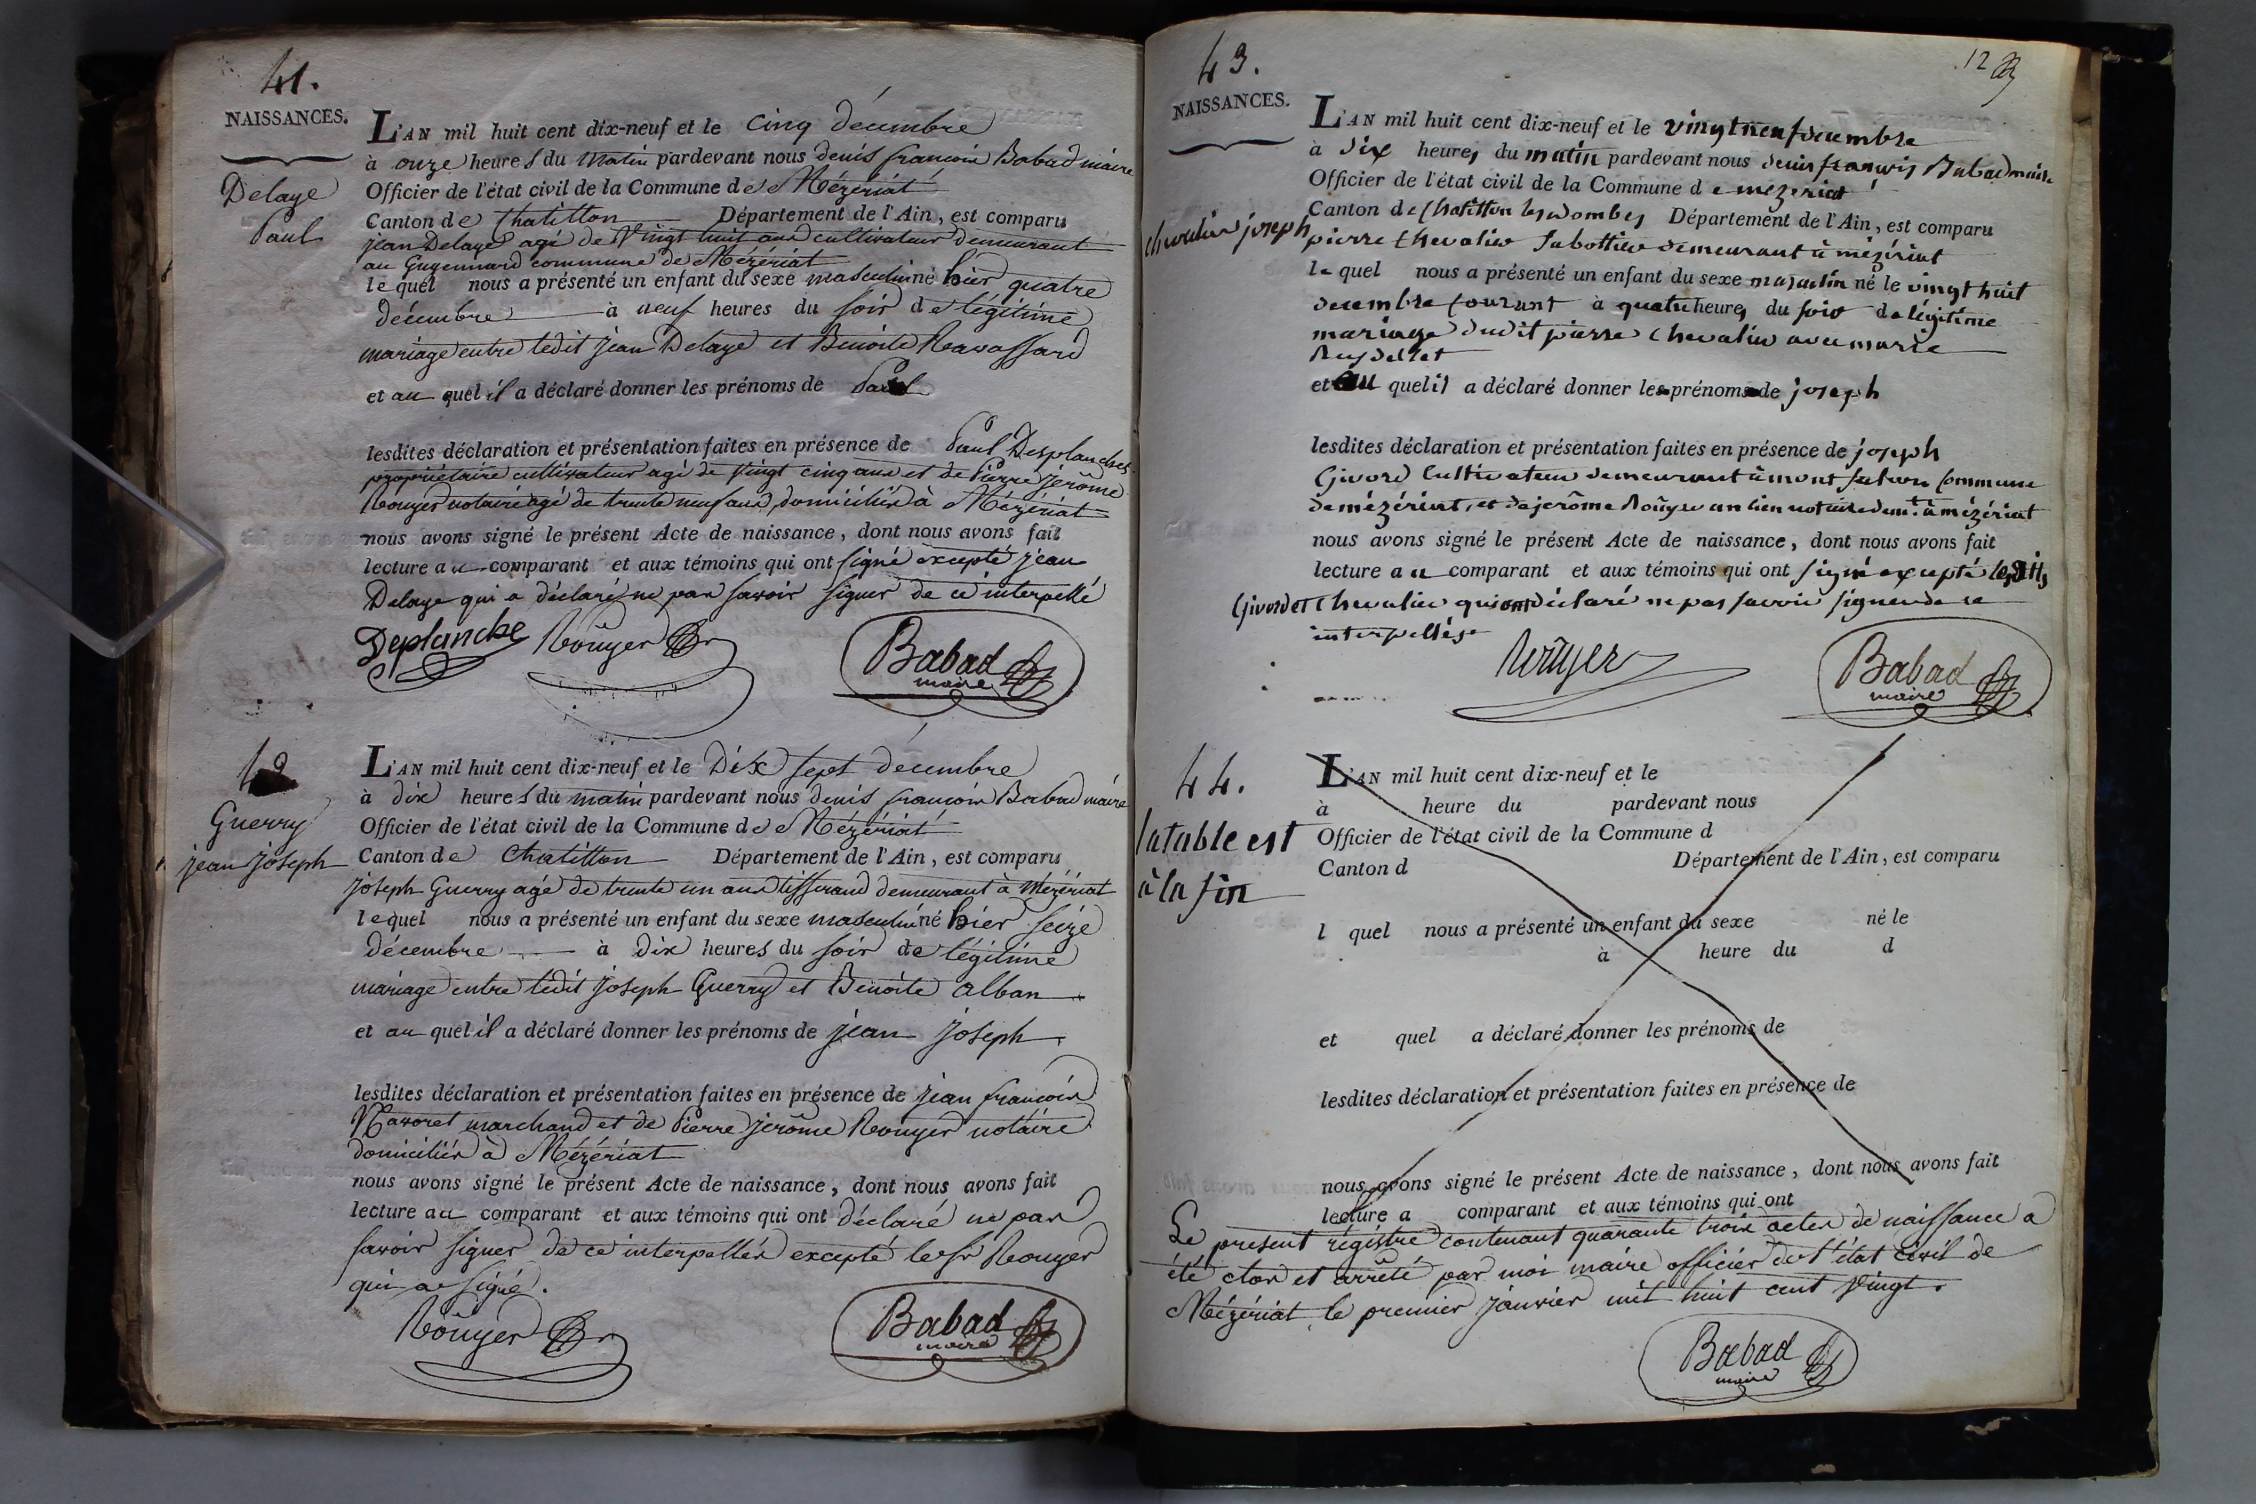 41.
NAISSANCES.
Delaye
Paul
L'AN mil huit cent dix-neuf et le cinq décembre
à onze heures du matin pardevant nous denis françois Babad maire
Officier de l'état civil de la Commune de Mézériat
Canton de Chatillon Département de l'Ain, est comparu
jean Delaye agé de vingt huit ans cultivateur demeurant
au Guyennard commune de Mézériat
lequel nous a présenté un enfant du sexe masculin né hier quatre
décembre à neuf heures du soir de légitime
mariage entre ledit jean Delaye et Benoite Ravassard
et au quel il a déclaré donner les prénoms de Paul
lesdites déclaration et présentation faites en présence de Paul Desplanches
propriétaire cultivateur agé de vingt cinq ans et de Pierre jerôme
Rouyer notaire agé de trente neuf ans, domiciliés à Mézériat
nous avons signé le présent Acte de naissance, dont nous avons fait
lecture au comparant et aux témoins qui ont signé excepté jean
Delaye qui a déclaré ne pas savoir signer de ce interpellé
Deplanche Roüyer Babad
maire
42
Guerry
jean joseph
L'AN mil huit cent dix-neuf et le Dix sept décembre
à dix heures du matin pardevant nous denis françois Babad maire
Officier de l'état civil de la Commune de Mézériat
Canton de Chatillon Département de l'Ain, est comparu
joseph Guerry agé de trente un ans tisserand demeurant à Mézériat
lequel nous a présenté un enfant du sexe masculin né hier seize
décembre à dix heures du soir de légitime
mariage entre ledit joseph Guerry et Benoite alban
et au quel il a déclaré donner les prénoms de jean joseph.
lesdites déclaration et présentation faites en présence de jean françois
Navoret marchand et de Pierre jerôme Rouyer notaire
domiciliés à Mézériat
nous avons signé le présent Acte de naissance, dont nous avons fait
lecture au comparant et aux témoins qui ont déclaré ne pas
savoir signer de ce interpellés excepté le sr Rouyer
qui a signé.
Roüyer Babad
maire
43.
12
NAISSANCES.
chevalier joseph
L'AN mil huit cent dix-neuf et le vingt neuf decembre
à dix heures du matin pardevant nous denis françois Babad maire
Officier de l'état civil de la Commune de mézeriat
Canton de Chatillon les dombes Département de l'Ain, est comparu
pierre Chevalier Sabottier demeurant à mézériat
lequel nous a présenté un enfant du sexe masculin né le vingt huit
decembre courant à quatre heures du soir de légitime
mariage dudit pierre Chevalier avec marie
et au quel il a déclaré donner les prénoms de joseph
lesdites déclaration et présentation faites en présence de joseph
Givord Cultivateur demeurant à mont falcon Commune
de mézériat, et de jerôme Roüyer ancien notaire demt. à mézériat
nous avons signé le présent Acte de naissance, dont nous avons fait
lecture au comparant et aux témoins qui ont signé excepté lesdits
Givord et Chevalier qui ont déclaré ne pas savoir signer de ce
interpellés
Roüyer Babad
maire
44.
la table est
à la fin
L'AN mil huit cent dix-neuf et le
à heure du pardevant nous
Officier de l'état civil de la Commune d
Canton d Département de l'Ain, est comparu
l quel nous a présenté un enfant du sexe né le
à heure du d
et quel a déclaré donner les prénoms de
lesdites déclaration et présentation faites en présence de
nous avons signé le présent Acte de naissance, dont nous avons fait
lecture a comparant et aux témoins qui ont
Le present régistre contenant quarante trois actes de naissance a
été clos et arrêté par moi maire officier de l'état civil de
Mézériat le premier janvier mil huit cent vingt.
Babad
maire